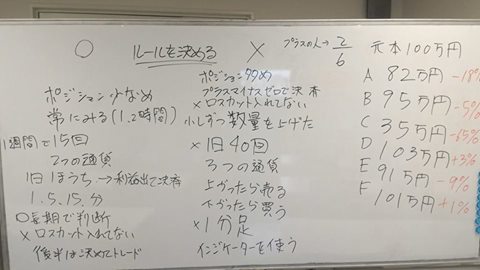 ○ ルールを決める × プラスの人→ 2/6
元本100万円
ポジション少なめ
常にみる(1.2時間)
1週間で15回
2つの通貨
1日1ほうち→利益出て決済
1.5.15.分
○長期で判断
×ロスカット入れてない
後半は決めてトレード
ポジション多め
プラスマイナスゼロで決済
×ロスカット入れてない
小しずつ数量を上げた
×1日40回
3つの通貨
上がったら売る
下がったら買う
×1分足
インジケーターを使う
A 82万円 -18%
B 95万円 -5%
C 35万円 -65%
D 103万円 +3%
E 91万円 -9%
F 101万円 +1%